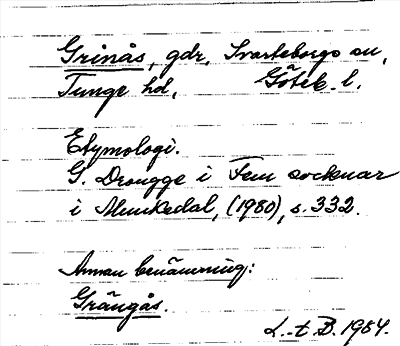 Grinås, gdr, Svarteborgs sn,
Tunge hd, Göteb. l.
Etymologi.
G. Drougge i Fem socknar
i Munkedal, (1980), s. 332.
Annan benämning:
Grängås.
L.-t. B. 1984.